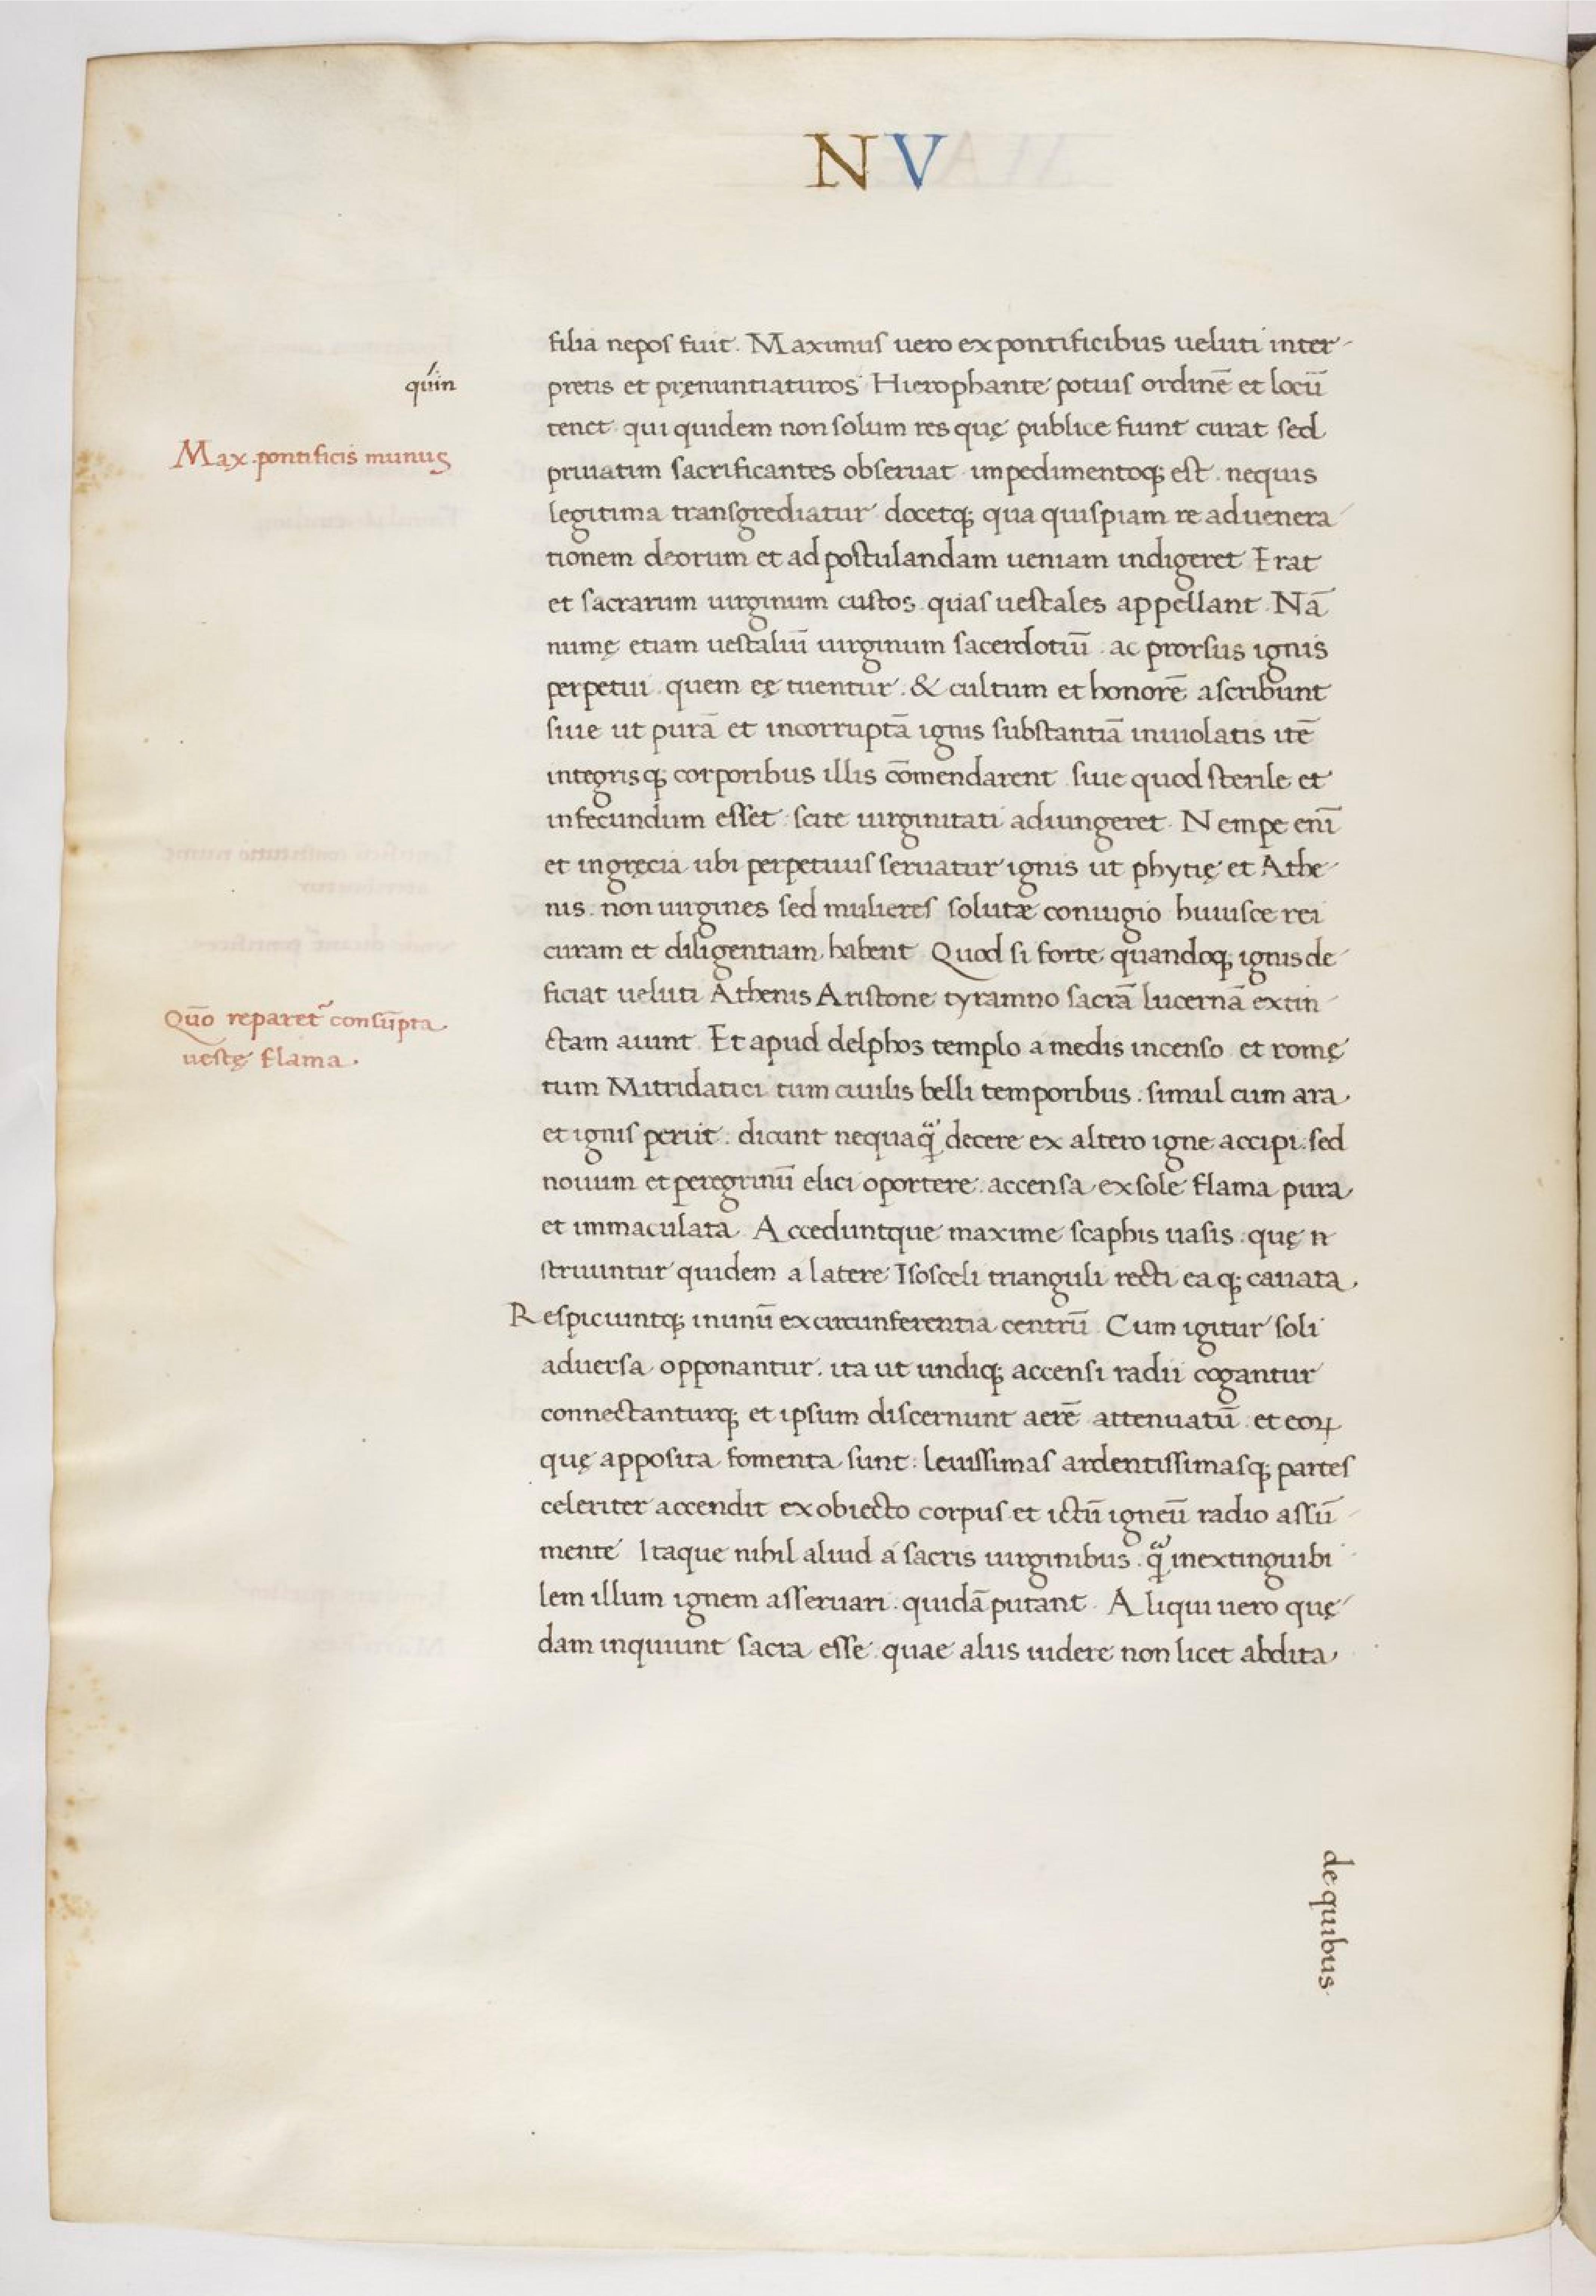 NV
filia nepos fuit. Maximus uero ex pontificibus ueluti inter-
quin
pretis et pręnuntiaturos Hierophante potius ordinē et locū
tenet. qui quidem non solum res quę publice fiunt curat sed
Max. pontificis munus
priuatim sacrificantes obseruat impedimentoq; est. nequis
legitima transgrediatur docetq; qua quispiam re ad uenera-
tionem deorum et ad postulandam ueniam indigeret Erat
et sacrarum uirginum custos. quas uestales appellant. Nā
numę etiam uestaliū uirginum sacerdotiū. ac prorsus ignis
perpetui. quem eę tuentur. & cultum et honorē ascribunt
siue ut purā et incorruptā ignis substantiā inuiolatis itē
integrisq; corporibus illis cōmendarent siue quod sterile et
infecundum esset: scite uirginitati adiungeret. Nempe enī
et in gręcia ubi perpetuus seruatur ignis ut phytię et Athe-
nis. non uirgines sed mulieres solutæ coniugio huiusce rei
curam et diligentiam habent Quod si forte quandoq; ignis de-
ficiat ueluti Athenis Aristone tyramno sacrā lucernā extin-
Quō reparet᷑ consūpta
uestę flama.
ctam aiunt Et apud delphos templo a medis incenso et romę
tum Mitridatici tum ciuilis belli temporibus. simul cum ara
et ignis periit. dicunt nequaq̃ decere ex altero igne accipi. sed
nouum et peregrinū elici oportere. accensa ex sole flama pura
et immaculata. Acceduntque maxime scaphis uasis. quę n
struuntur quidem a latere Isosceli trianguli recti ea q; cauata.
Respiciuntq; in unū ex circunferentia centrū. Cum igitur soli
aduersa opponantur. ita ut undiq; accensi radii cogantur
connectanturq; et ipsum discernunt aerē attenuatū. et eoꝝ
quę apposita fomenta sunt: leuissimas ardentissimasq; partes
celeriter accendit ex obiecto corpus et ictū igneū radio assū-
mente Itaque nihil aliud a sacris uirginibus. q̃ inextinguibi-
lem illum ignem asseruari. quidā putant. Aliqui uero quę-
dam inquiunt sacra esse. quae aliis uidere non licet abdita
de quibus